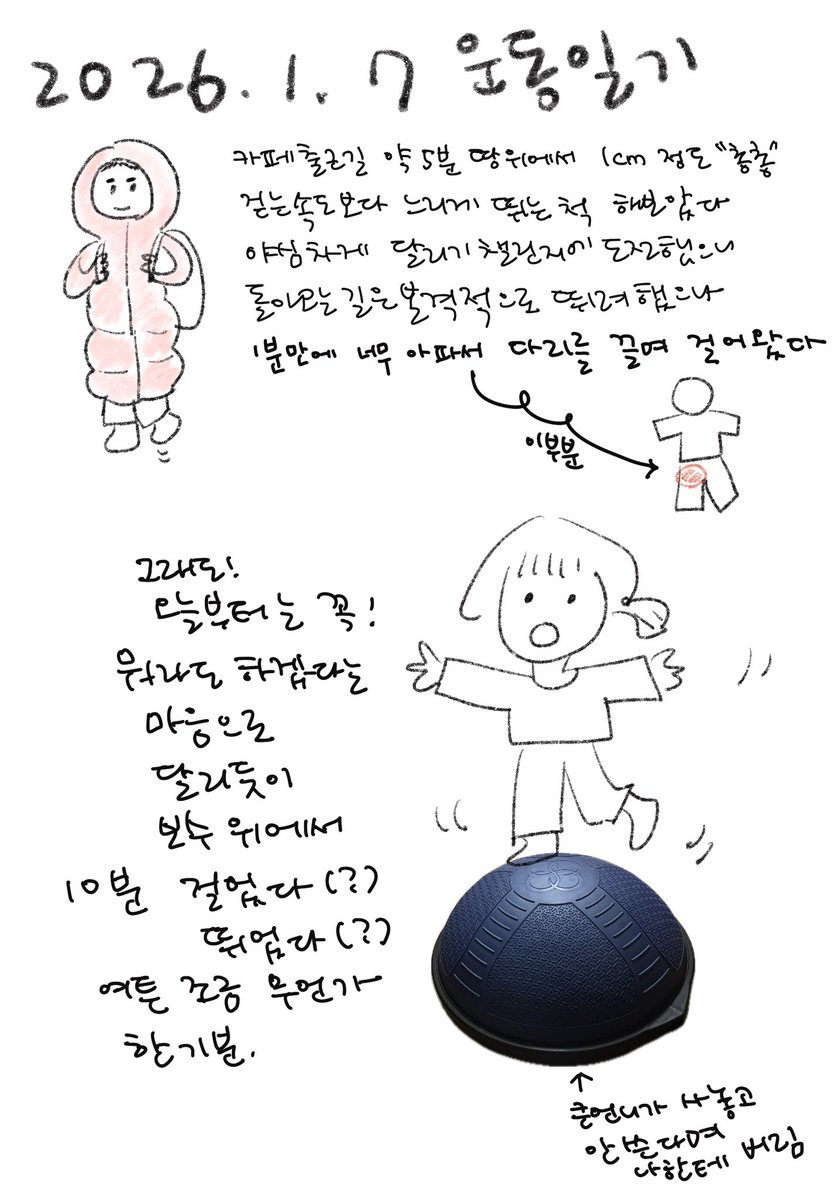 2026.1.7 운동일기
카페출근길 약 5분 땅위에서 1cm 정도 "총총"
걷는속도보다 느리게 뛰는 척 해보았다
야심차게 달리기 챌린지에 도전했으니
돌아오는 길은 본격적으로 뛰려했으나
1분만에 너무 아파서 다리를 끌며 걸어왔다
이부분
그래도!
오늘부터는 꼭!
뭐라도 하겠다는
마음으로
달리듯이
보수 위에서
10분 걸었다(?)
뛰었다(?)
여튼 조금 무언가
한기분.
큰언니가 사놓고
안쓴다며
나한테 버림